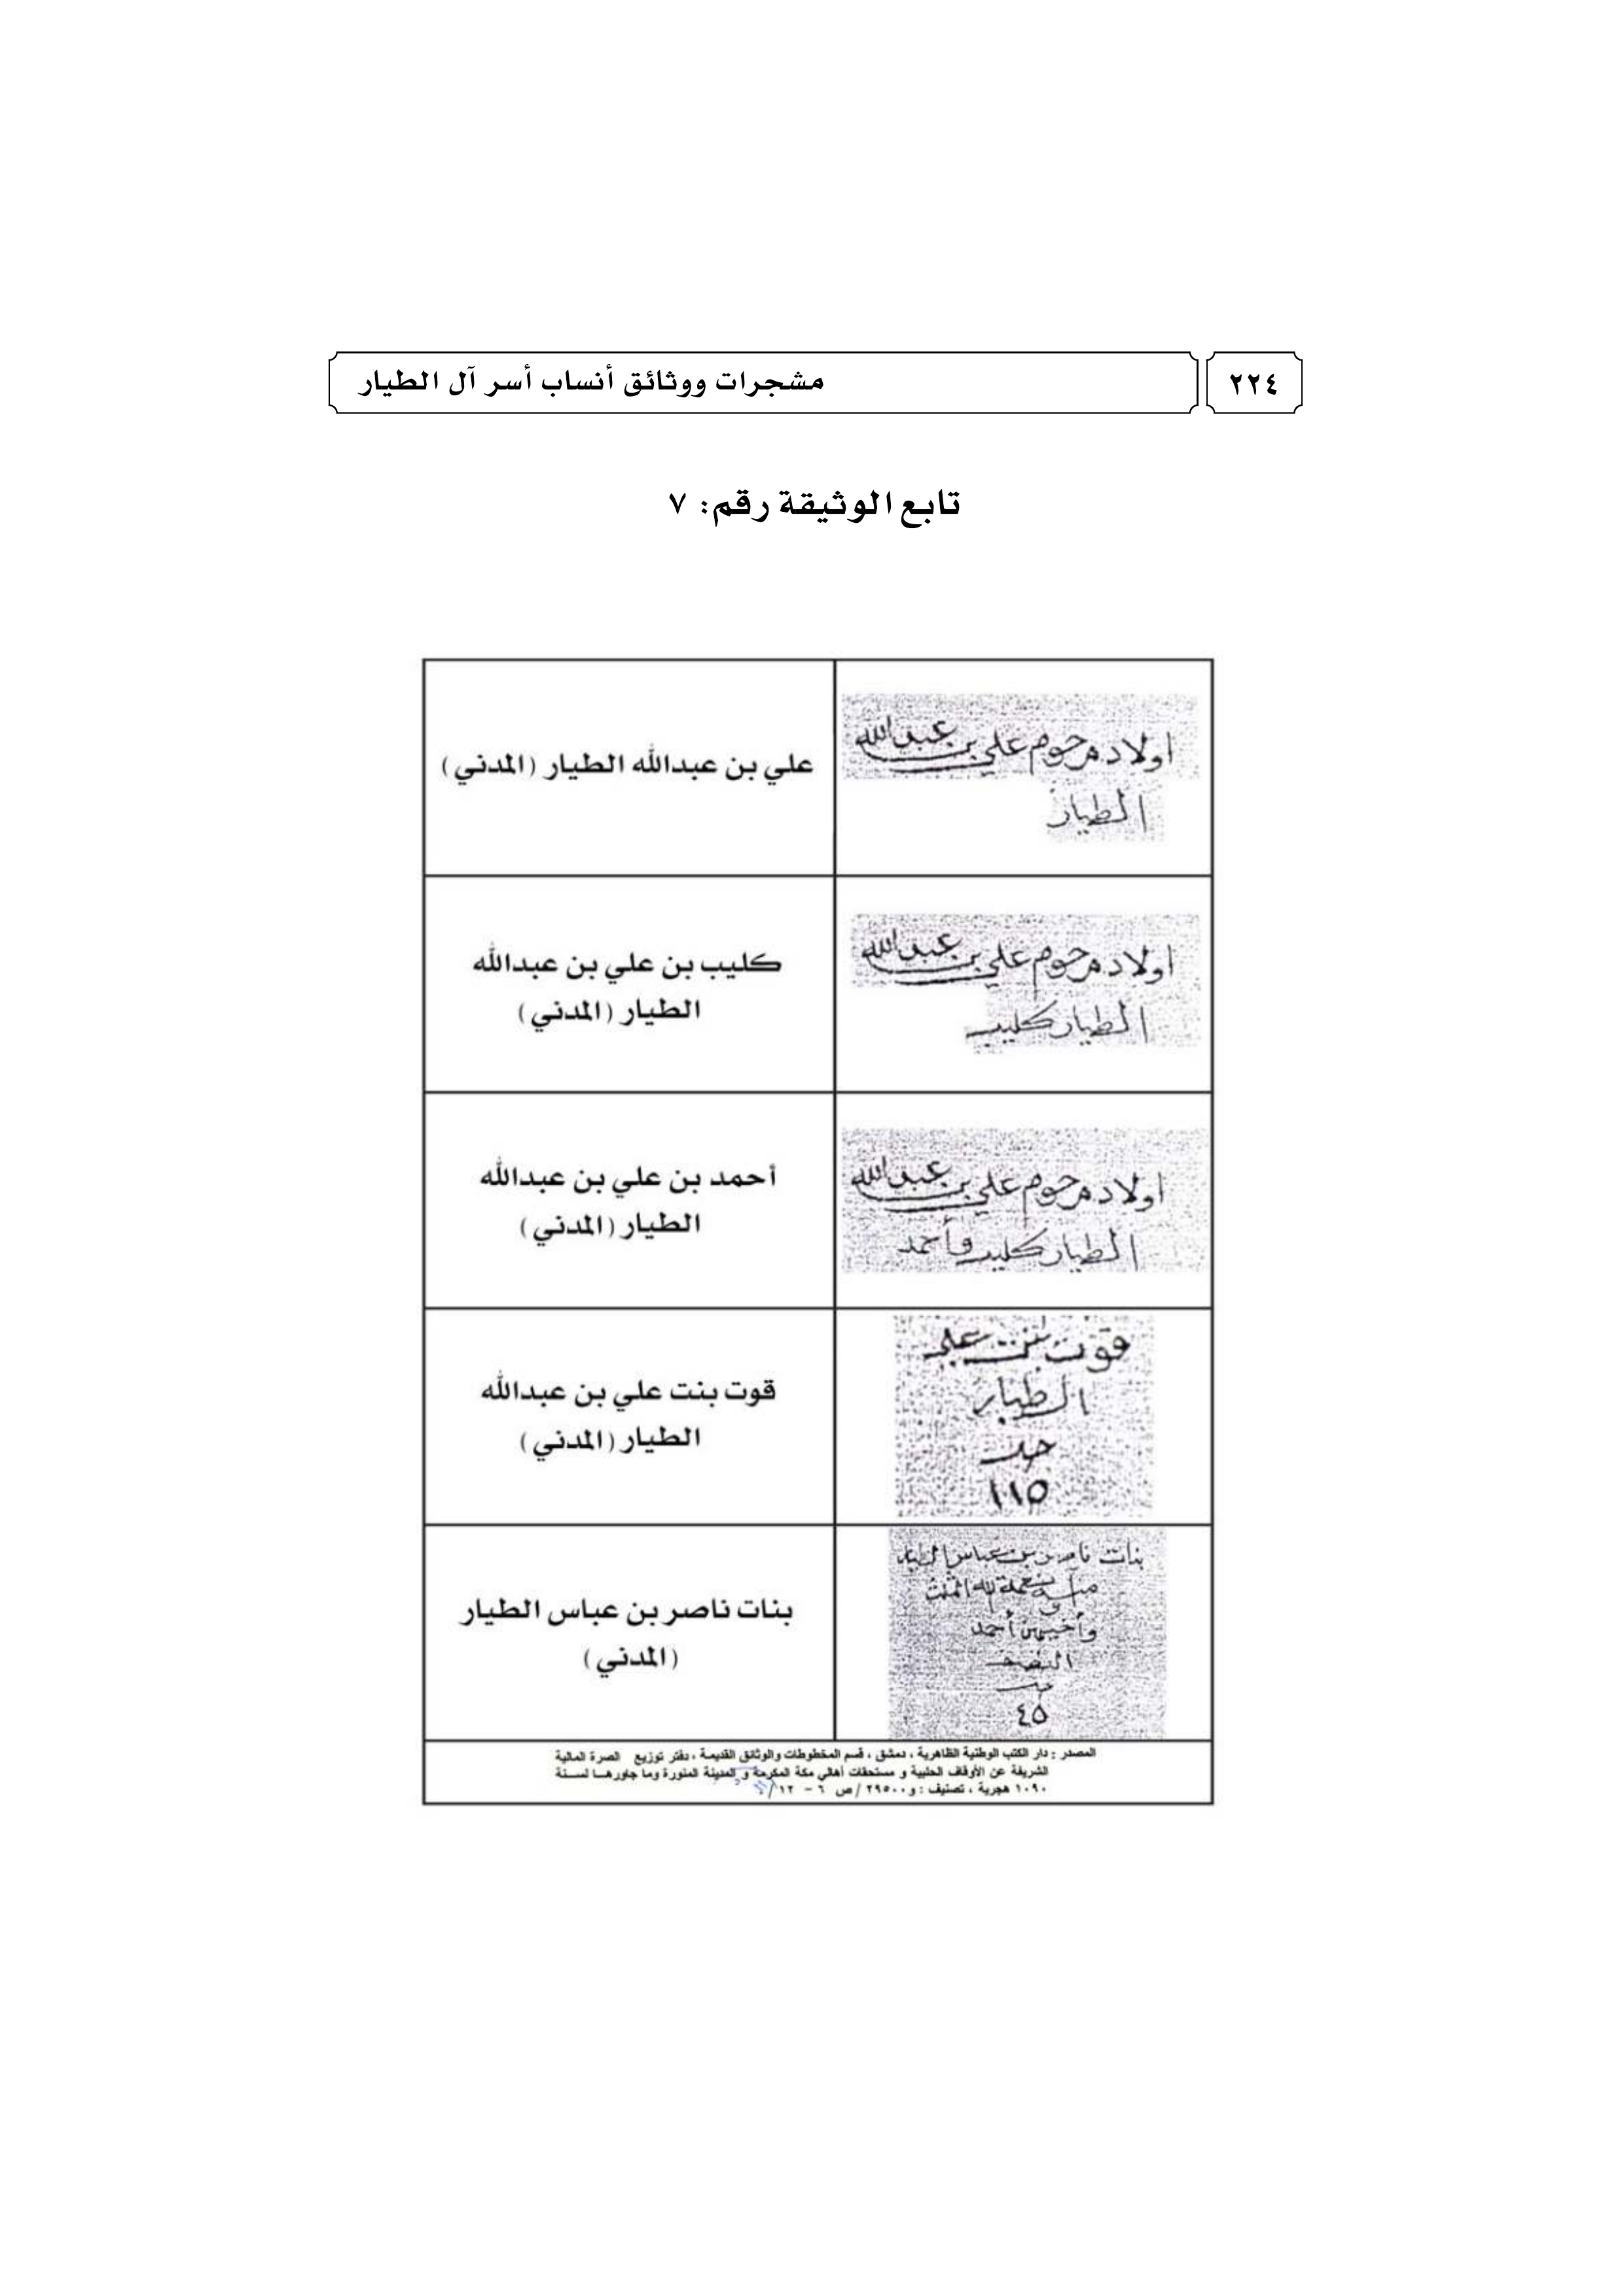 ٢٢٤
مشجرات ووثائق أنساب أسر آل الطيار
تابع الوثيقة رقم: ٧
اولاد مرحوم علي بن عبدالله
الطيار
علي بن عبدالله الطيار (المدني)
اولاد مرحوم علي بن عبدالله
الطيار كليب
كليب بن علي بن عبدالله
الطيار (المدني)
اولاد مرحوم علي بن عبدالله
الطيار كليب وأحمد
أحمد بن علي بن عبدالله
الطيار (المدني)
قوت بنت علي
الطيار
١١٥
قوت بنت علي بن عبدالله
الطيار (المدني)
بنات ناصر بن عباس الطيار
أحمد
النصف
٤٥
بنات ناصر بن عباس الطيار
(المدني)
المصدر : دار الكتب الوطنية الظاهرية ، دمشق ، قسم المخطوطات والوثائق القديمة ، دفتر توزيع الصرة المالية
الشريفة عن الأوقاف الحلبية و مستحقات أهالي مكة المكرمة و المدينة المنورة وما جاورهـا لسـنة
١٠٩٠ هجرية ، تصنيف : و٢٩٥٠٠ / ص ٦ - ١٢